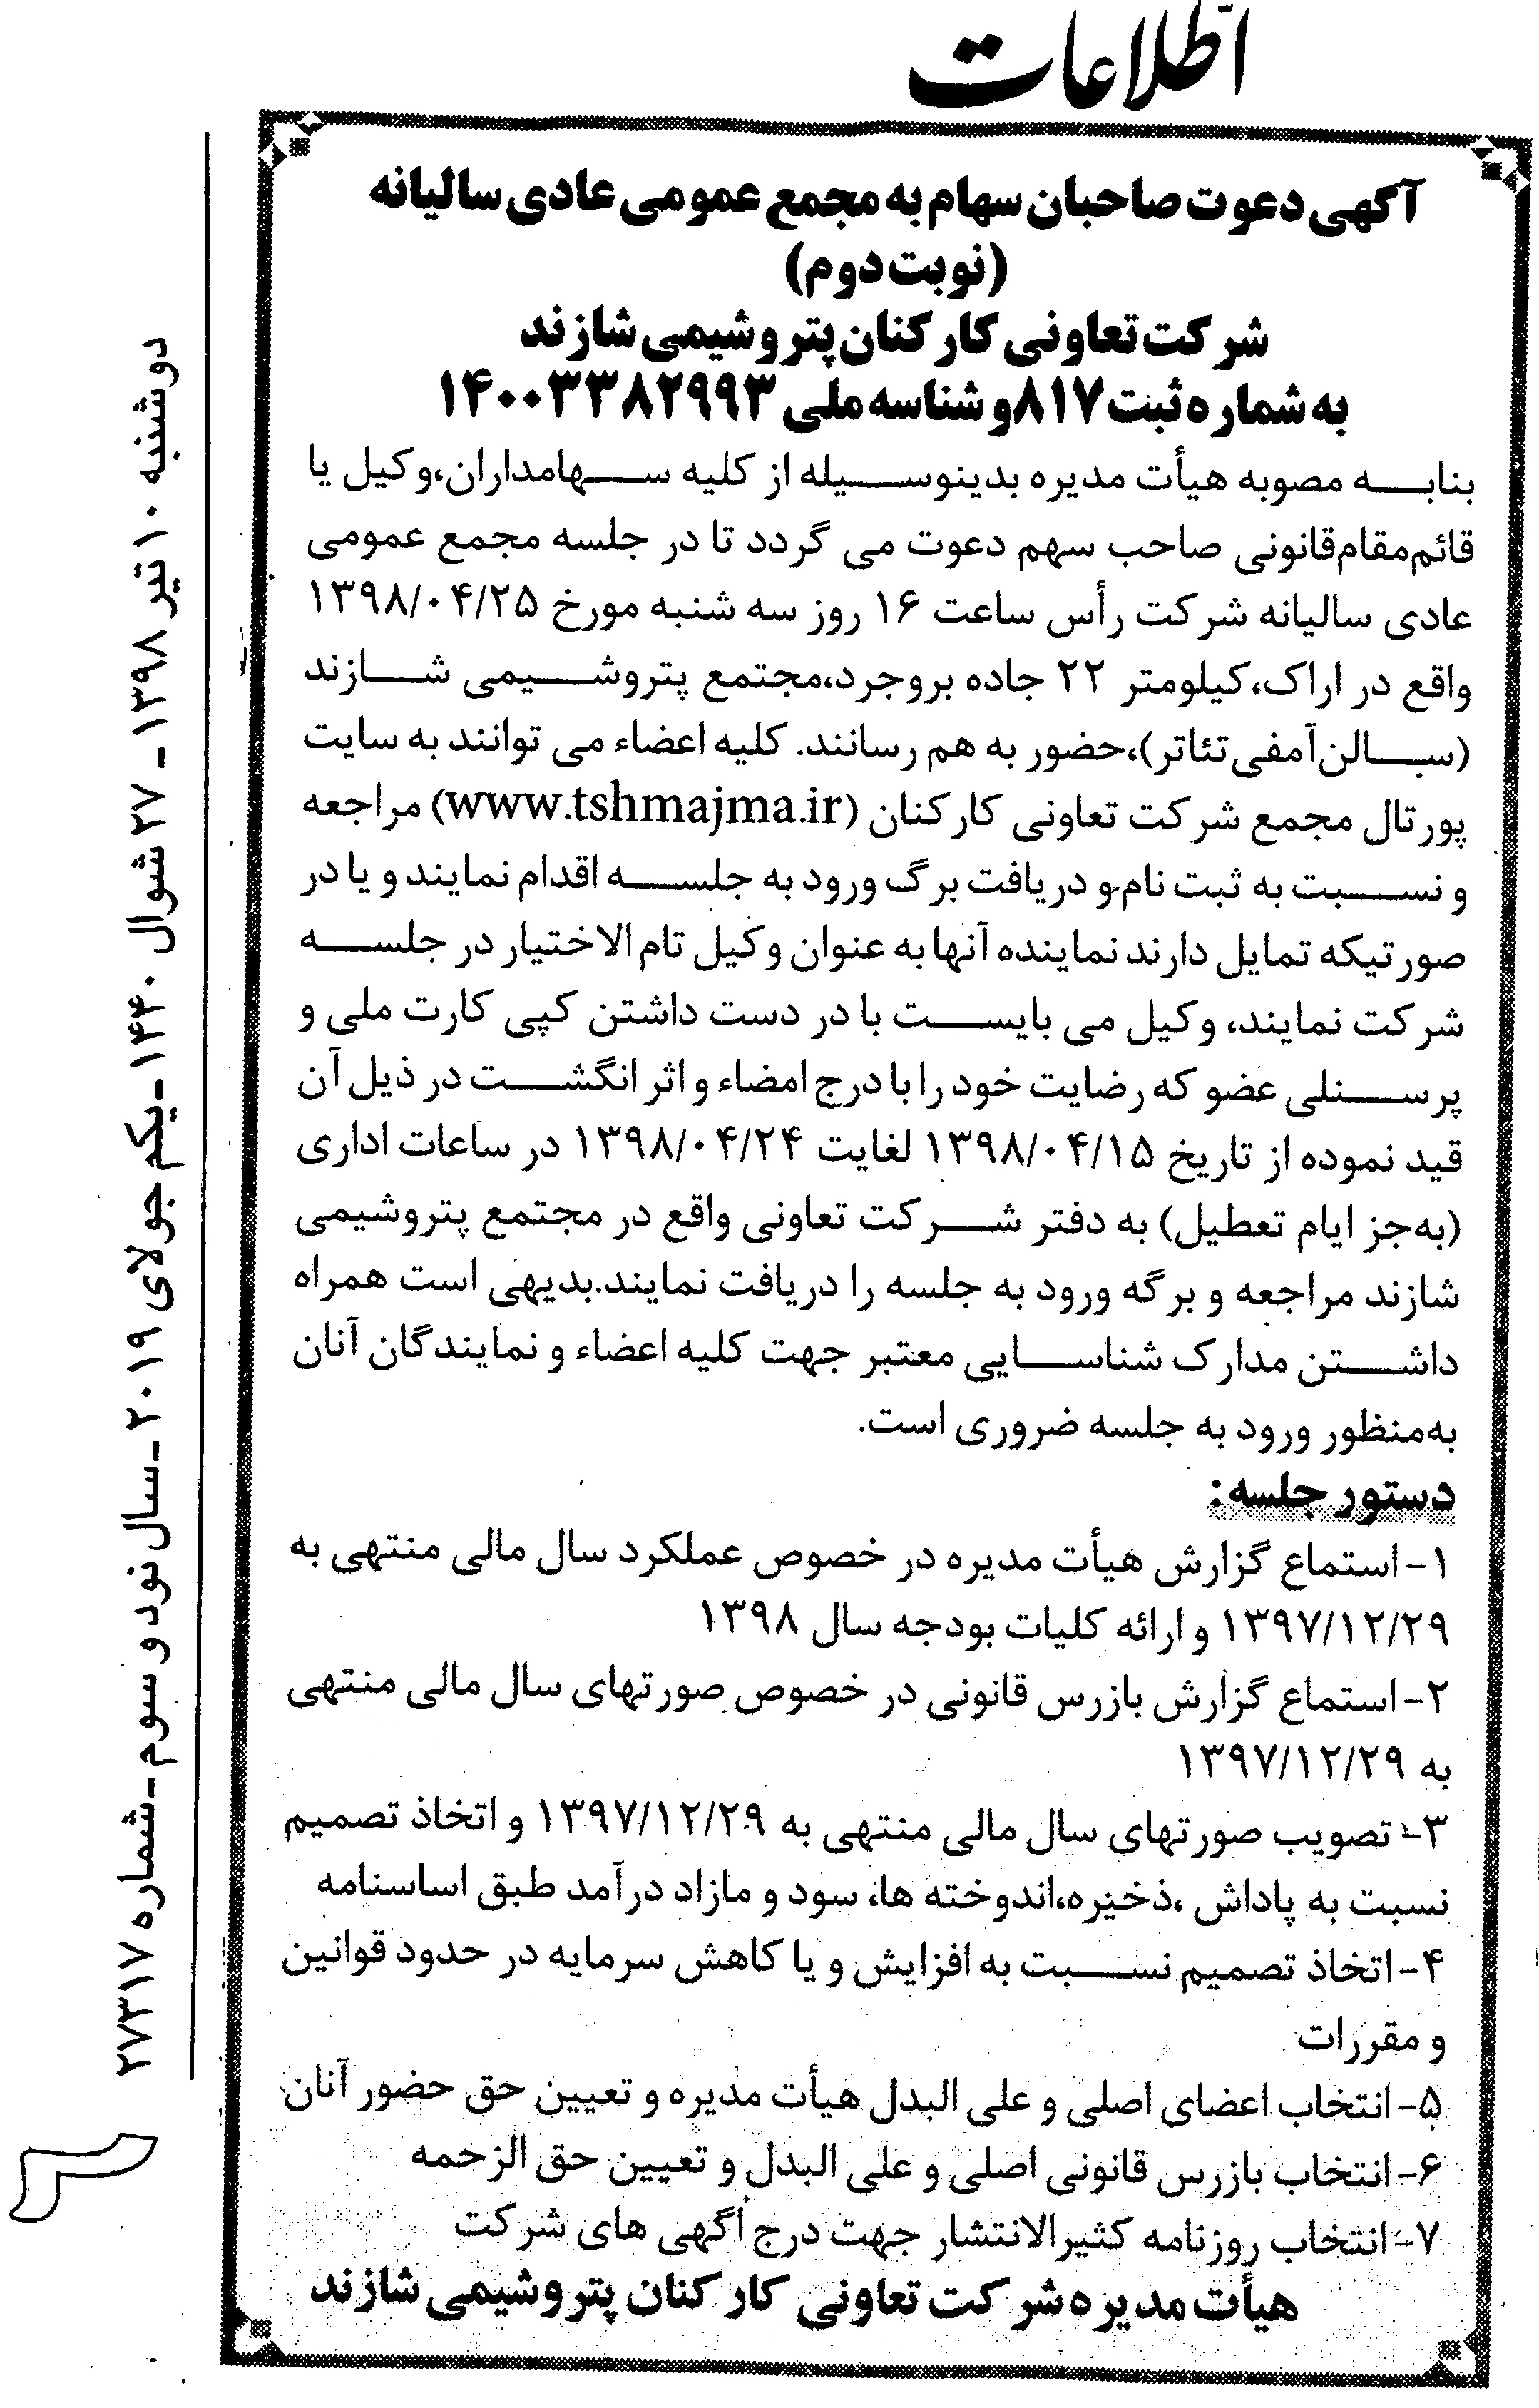 اطلاعات
آگهی دعوت صاحبان سهام به مجمع عمومی عادی سالیانه
(نوبت دوم)
شرکت تعاونی کارکنان پتروشیمی شازند
به شماره ثبت ۸۱۷ و شناسه ملی ۱۴۰۰۳۳۸۲۹۹۳
بنابه مصوبه هیأت مدیره بدینوسیله از کلیه سهامداران،وکیل یا
قائم‌مقام‌قانونی صاحب سهم دعوت می گردد تا در جلسه مجمع عمومی
عادی سالیانه شرکت رأس ساعت ۱۶ روز سه شنبه مورخ ۱۳۹۸/۰۴/۲۵
واقع در اراک،کیلومتر ۲۲ جاده بروجرد،مجتمع پتروشیمی شازند
(سالن‌آمفی‌تئاتر)،حضور به هم رسانند. کلیه اعضاء می توانند به سایت
پورتال مجمع شرکت تعاونی کارکنان (www.tshmajma.ir) مراجعه
و نسبت به ثبت نام و دریافت برگ ورود به جلسه اقدام نمایند و یا در
صورتیکه تمایل دارند نماینده آنها به عنوان وکیل تام الاختیار در جلسه
شرکت نمایند، وکیل می بایست با در دست داشتن کپی کارت ملی و
پرسنلی عضو که رضایت خود را با درج امضاء و اثر انگشت در ذیل آن
قید نموده از تاریخ ۱۳۹۸/۰۴/۱۵ لغایت ۱۳۹۸/۰۴/۲۴ در ساعات اداری
(به‌جز ایام تعطیل) به دفتر شرکت تعاونی واقع در مجتمع پتروشیمی
شازند مراجعه و برگه ورود به جلسه را دریافت نمایند.بدیهی است همراه
داشتن مدارک شناسایی معتبر جهت کلیه اعضاء و نمایندگان آنان
به‌منظور ورود به جلسه ضروری است.
دستور جلسه:
۱- استماع گزارش هیأت مدیره در خصوص عملکرد سال مالی منتهی به
۱۳۹۷/۱۲/۲۹ و ارائه کلیات بودجه سال ۱۳۹۸
۲- استماع گزارش بازرس قانونی در خصوص صورتهای سال مالی منتهی
به ۱۳۹۷/۱۲/۲۹
۳- تصویب صورتهای سال مالی منتهی به ۱۳۹۷/۱۲/۲۹ و اتخاذ تصمیم
نسبت به پاداش ،ذخیره،اندوخته ها، سود و مازاد درآمد طبق اساسنامه
۴- اتخاذ تصمیم نسبت به افزایش و یا کاهش سرمایه در حدود قوانین
و مقررات
۵- انتخاب اعضای اصلی و علی البدل هیأت مدیره و تعیین حق حضور آنان
۶- انتخاب بازرس قانونی اصلی و علی البدل و تعیین حق الزحمه
۷- انتخاب روزنامه کثیرالانتشار جهت درج آگهی های شرکت
هیأت مدیره شرکت تعاونی کارکنان پتروشیمی شازند
دوشنبه ۱۰ تیر ۱۳۹۸ - ۲۷ شوال ۱۴۴۰ - یکم جولای ۲۰۱۹ - سال نود و سوم - شماره ۲۷۳۱۷